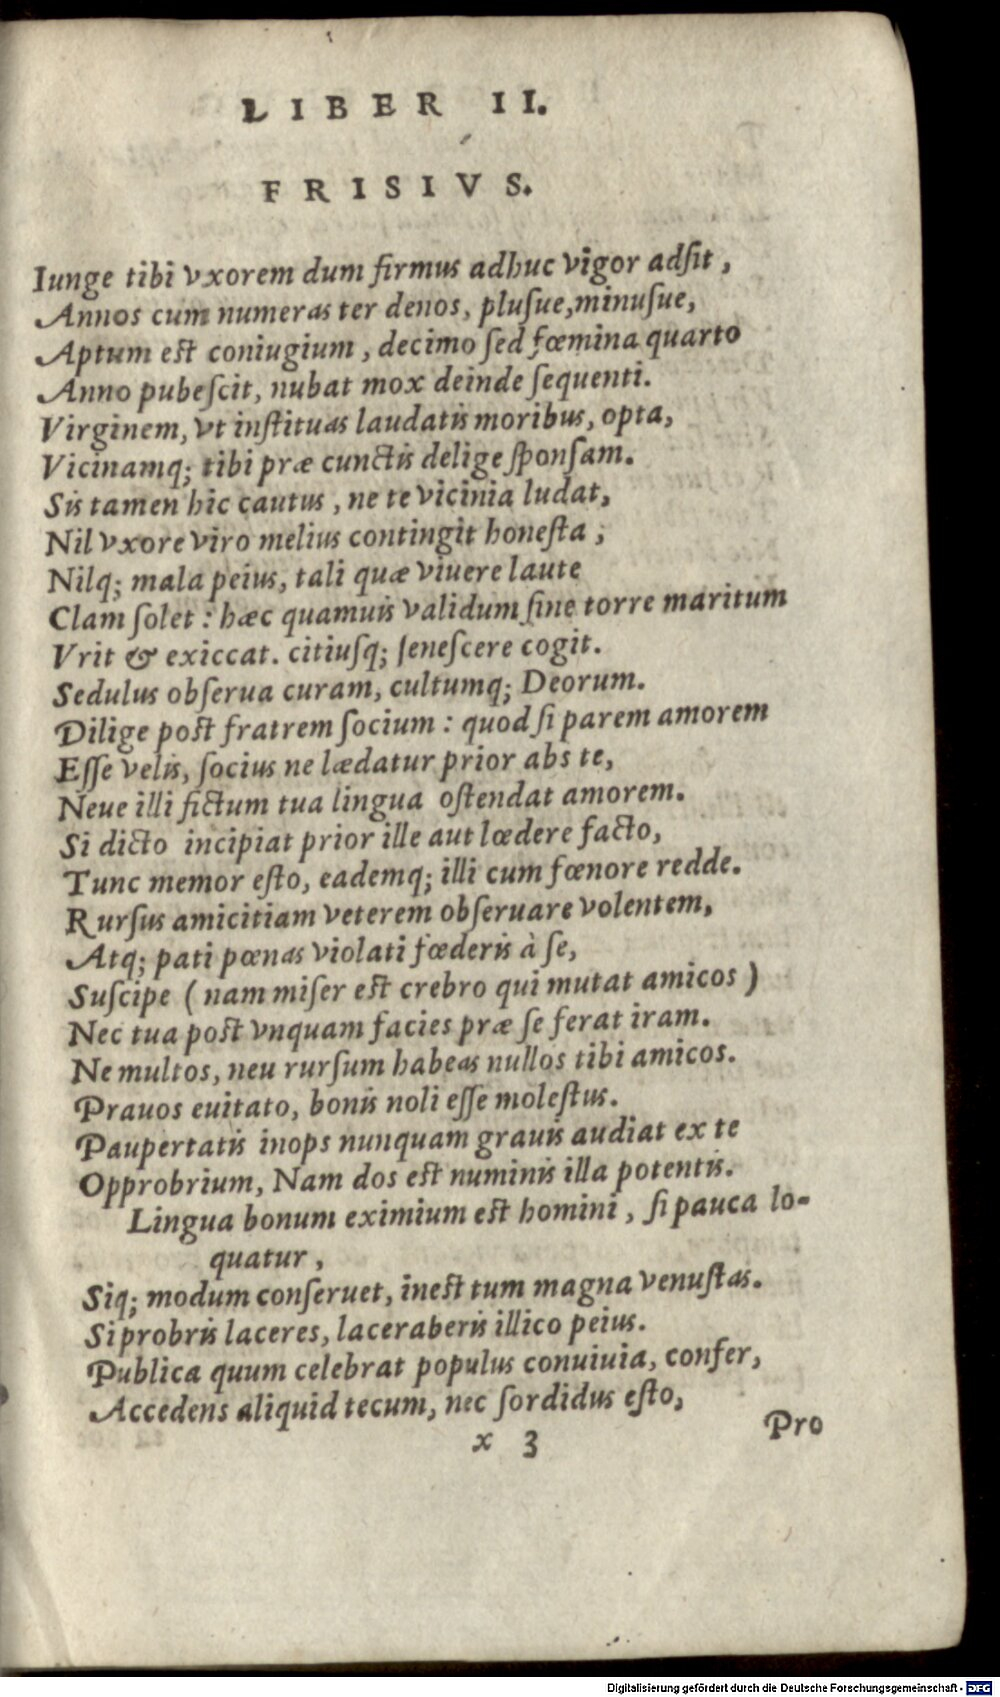 LIBER II.
FRISIVS.
Iunge tibi vxorem dum firmus adhuc vigor adſit,
Annos cum numeras ter denos, pluſue, minuſue,
Aptum eſt coniugium, decimo ſed fœmina quarto
Anno pubeſcit, nubat mox deinde ſequenti.
Virginem, vt inſtituas laudatis moribus, opta,
Vicinamq; tibi præ cunctis delige ſponſam.
Sis tamen hic cautus, ne te vicinia ludat,
Nil vxore viro melius contingit honeſta;
Nilq; mala peius, tali quæ viuere laute
Clam ſolet: hæc quamuis validum ſine torre maritum
Vrit & exiccat. citiuſq; ſeneſcere cogit.
Sedulus obſerua curam, cultumq; Deorum.
Dilige poſt fratrem ſocium: quod ſi parem amorem
Eſſe velis, ſocius ne lædatur prior abs te,
Neue illi fictum tua lingua oſtendat amorem.
Si dicto incipiat prior ille aut lœdere facto,
Tunc memor eſto, eademq; illi cum fœnore redde.
Rurſus amicitiam veterem obſeruare volentem,
Atq; pati pœnas violati fœderis à ſe,
Suſcipe (nam miſer eſt crebro qui mutat amicos)
Nec tua poſt vnquam facies præ ſe ferat iram.
Ne multos, neu rurſum habeas nullos tibi amicos.
Prauos euitato, bonis noli eſſe moleſtus.
Paupertatis inops nunquam grauis audiat ex te
Opprobrium, Nam dos eſt numinis illa potentis.
Lingua bonum eximium eſt homini, ſi pauca lo-
quatur,
Siq; modum conſeruet, ineſt tum magna venuſtas.
Si probris laceres, laceraberis illico peius.
Publica quum celebrat populus conuiuia, confer,
Accedens aliquid tecum, nec ſordidus eſto,
x 3
Pro
Digitalisierung gefördert durch die Deutsche Forschungsgemeinschaft - DFG